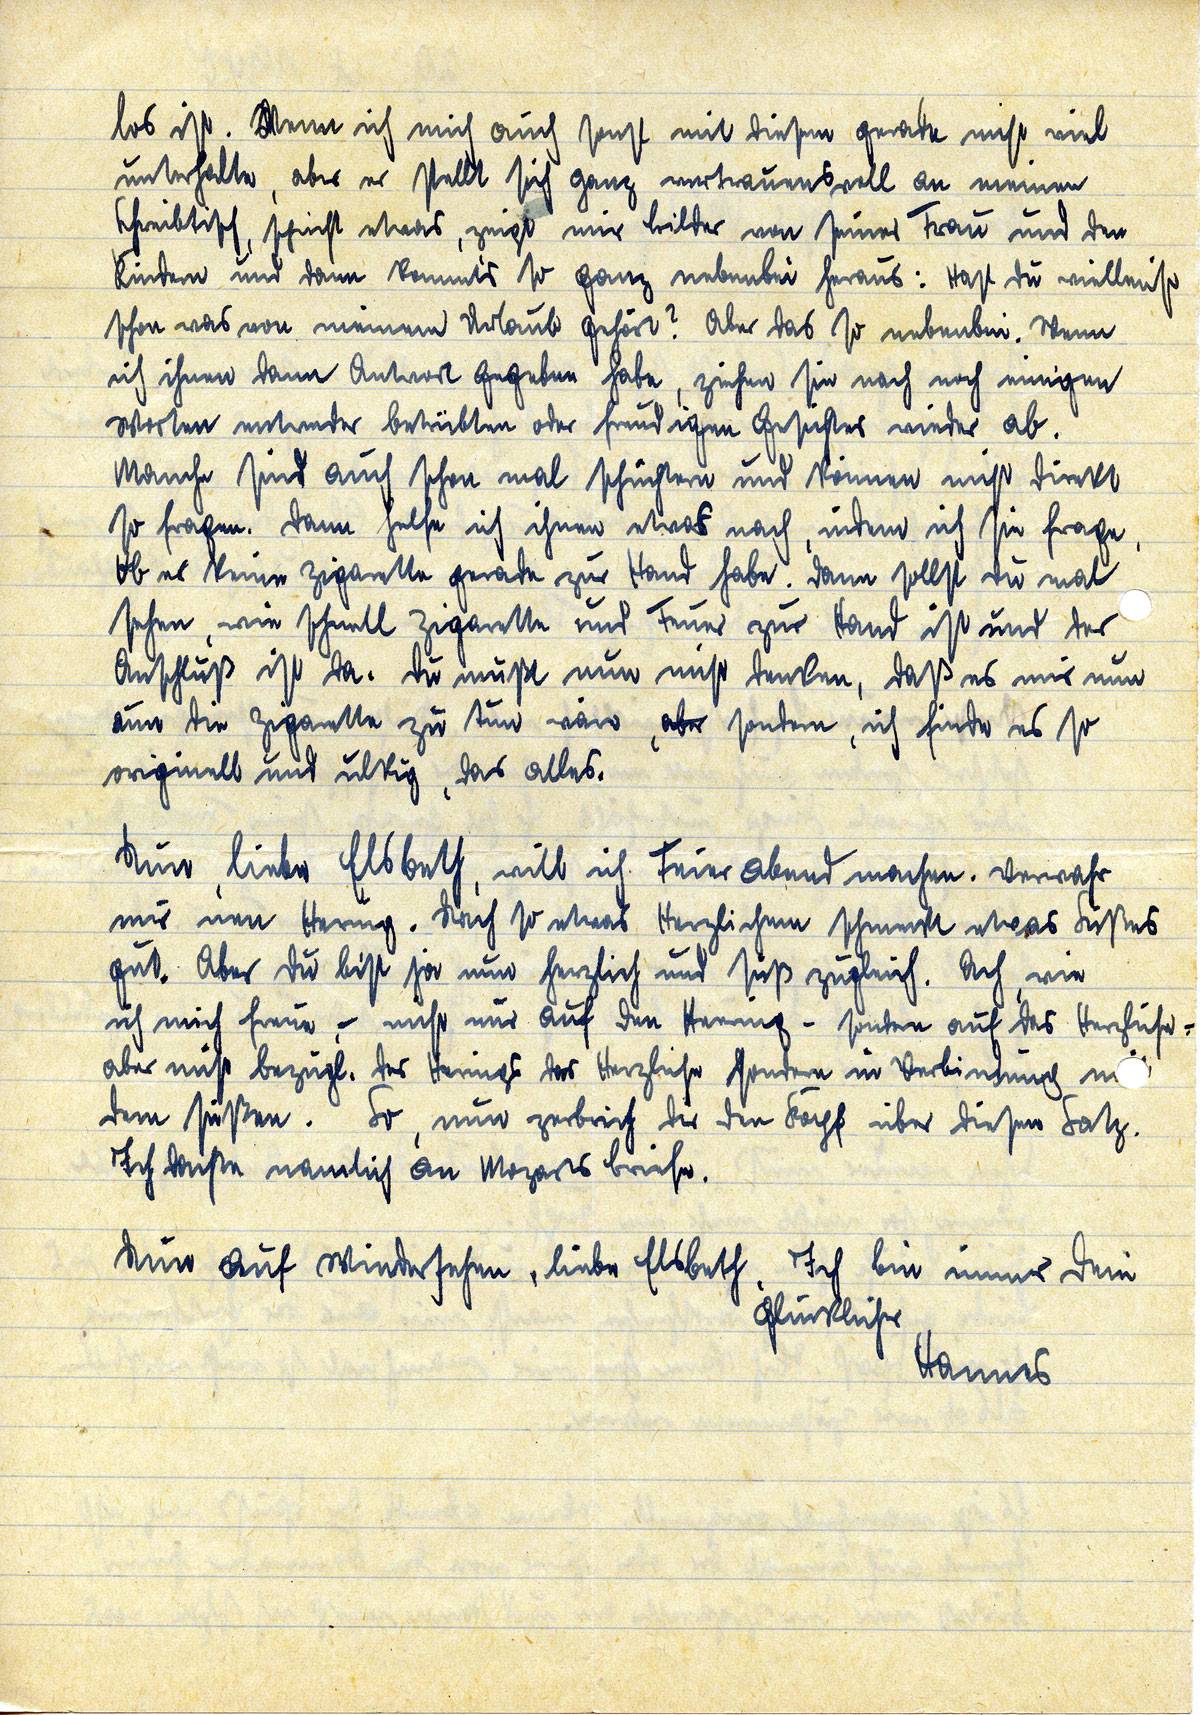 los ist. Wenn ich mich auch sonst mit diesem gerade nicht viel
unterhalte, aber er stellt sich ganz vertrauensvoll an meinen
Schreibtisch, spricht etwas, zeigt mir bilder von seiner Frau und den
Kindern und dann kommt's so ganz nebenbei heraus: Hast du vielleicht
schon was von meinem Urlaub gehört? Aber das so nebenbei. Wenn
ich ihnen dann Antwort gegeben habe, ziehen sie nach noch einigen
Worten entweder betrübten oder freudigen Gesichtes wieder ab.
Manche sind auch schon mal schüchtern und können nicht direkt
so fragen. Dann helfe ich ihnen etwas nach, indem ich sie frage,
ob er keine Zigarette gerade zur Hand habe. Dann sollst du mal
sehen, wie schnell Zigarette und Feuer zur Hand ist und der
Anschluß ist da. Du mußt nun nicht denken, daß es mir nun
um die Zigarette zu tun wäre, aber sondern, ich finde es so
originell und ulkig, das alles.
Nun, liebe Elsbeth, will ich Feierabend machen. Verwahr
mir nen Hering. Nach so etwas Herzlichem schmeckt etwas Süßes
gut. Aber du bist ja nun herzlich und süß zugleich. Ach, wie
ich mich freue, - nicht nur auf den Hering - sondern auf das Herzliche -
aber nicht bezügl. des Herings das Herzliche sondern in Verbindung mit
dem süßen. So, nun zerbrich dir den Kopf über diesen Satz.
Ich dachte nämlich an Mozarts briefe.
Nun auf Wiedersehen, liebe Elsbeth, Ich bin immer Dein
glücklicher
Hannes